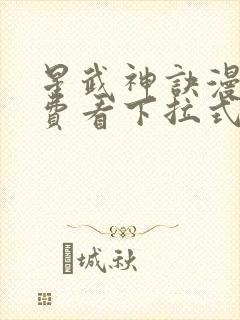 星武神訣漫
費看下拉式
城秋